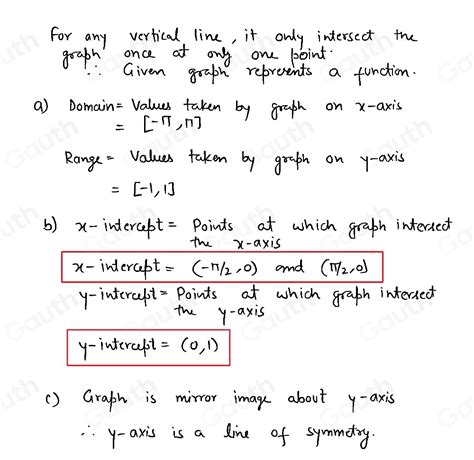 For any vertical line, it only intersect the
graph once at only one point.
∴ Given graph represents a function.
a) Domain = Values taken by graph on x-axis
= [-π, π]
Range = Values taken by graph on y-axis
= [-1, 1]
b) x-intercept = Points at which graph intersect
the x-axis
x-intercept = (-π/2, 0) and (π/2, 0)
y-intercept = Points at which graph intersect
the y-axis
y-intercept = (0, 1)
c) Graph is mirror image about y-axis
∴ y-axis is a line of symmetry.